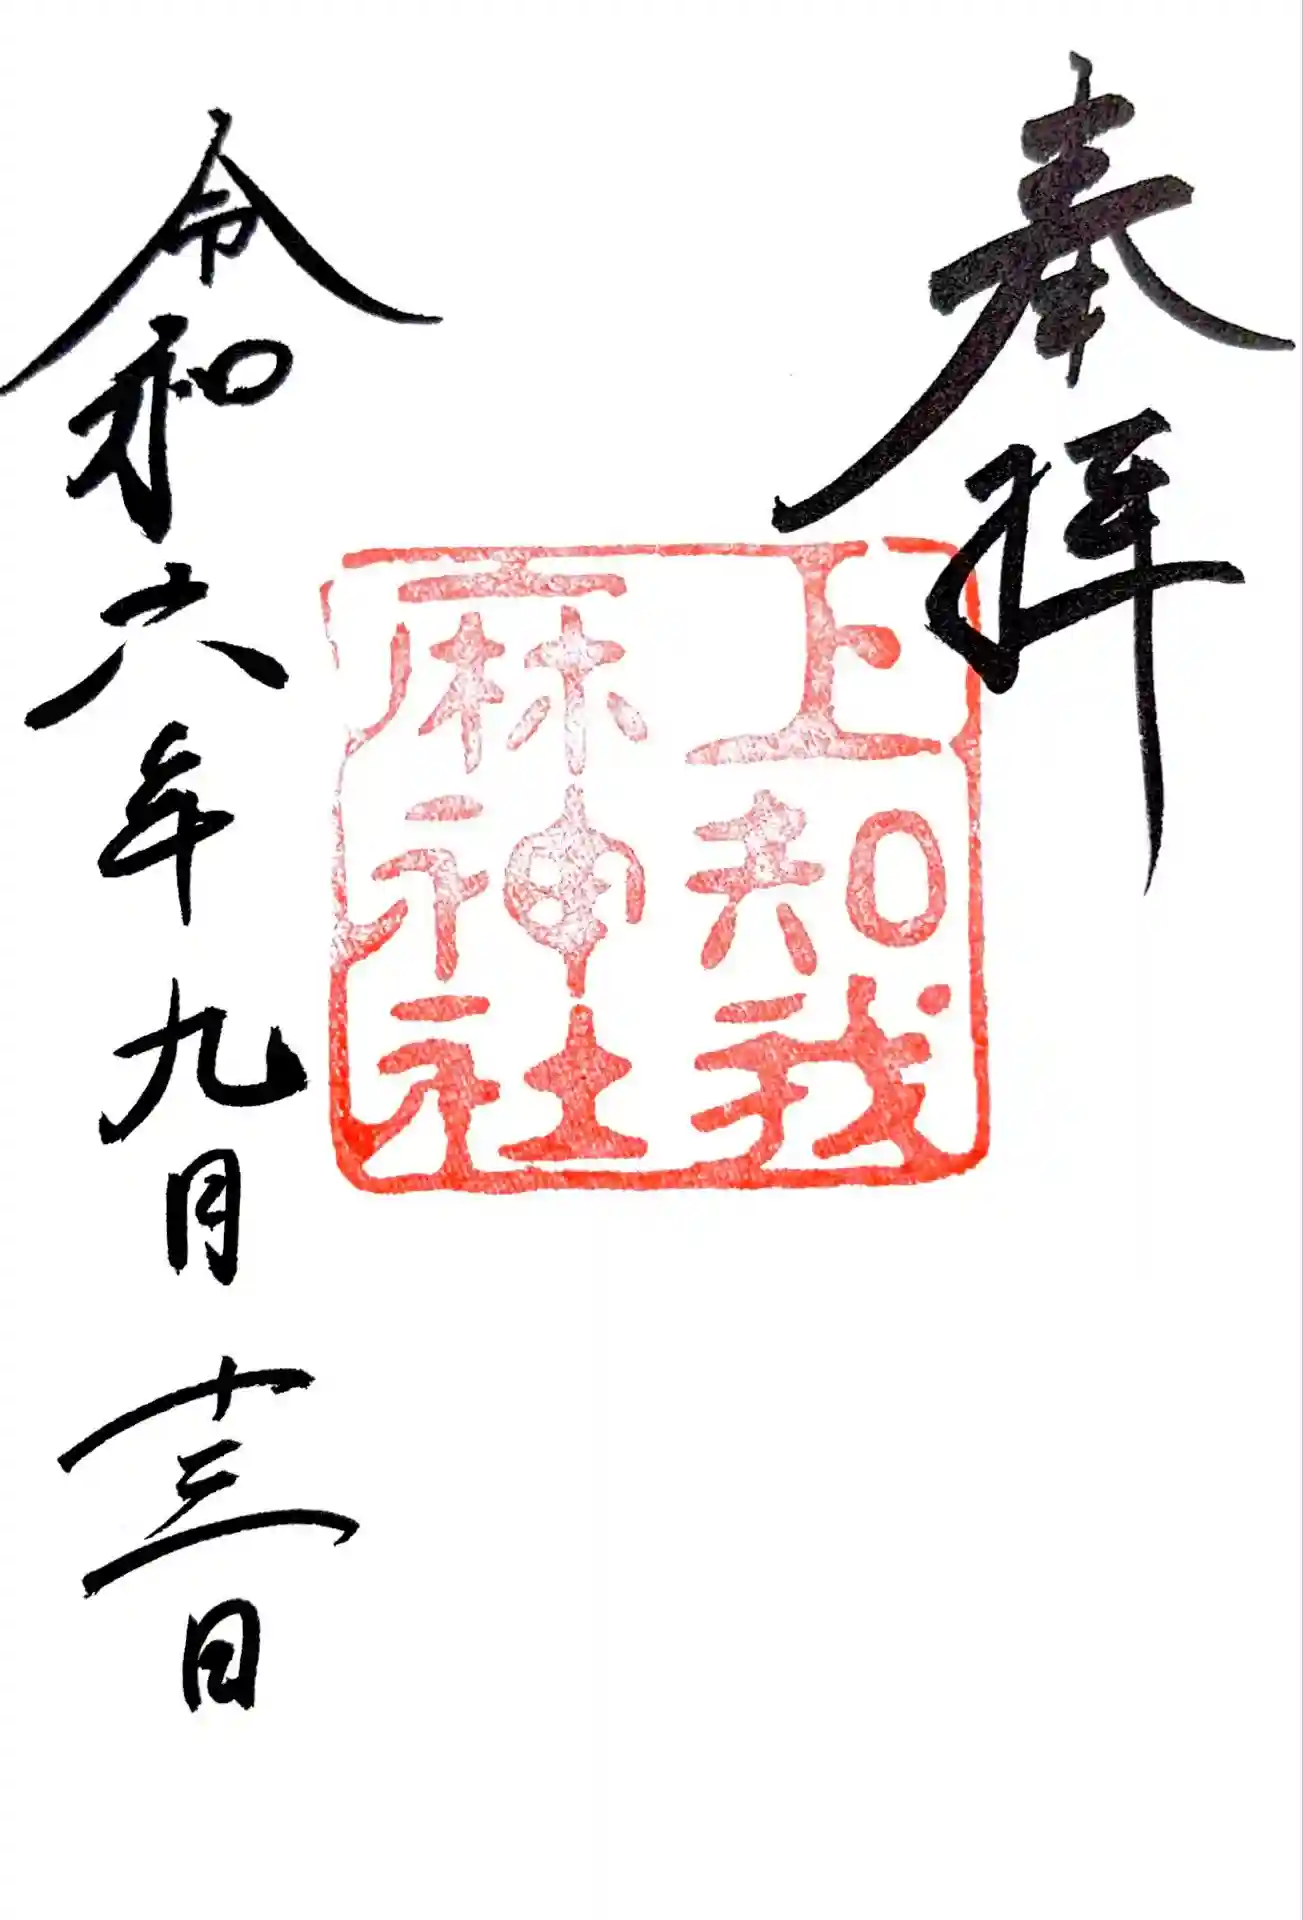 奉拝
上知我
麻神社
令和六年九月十三日